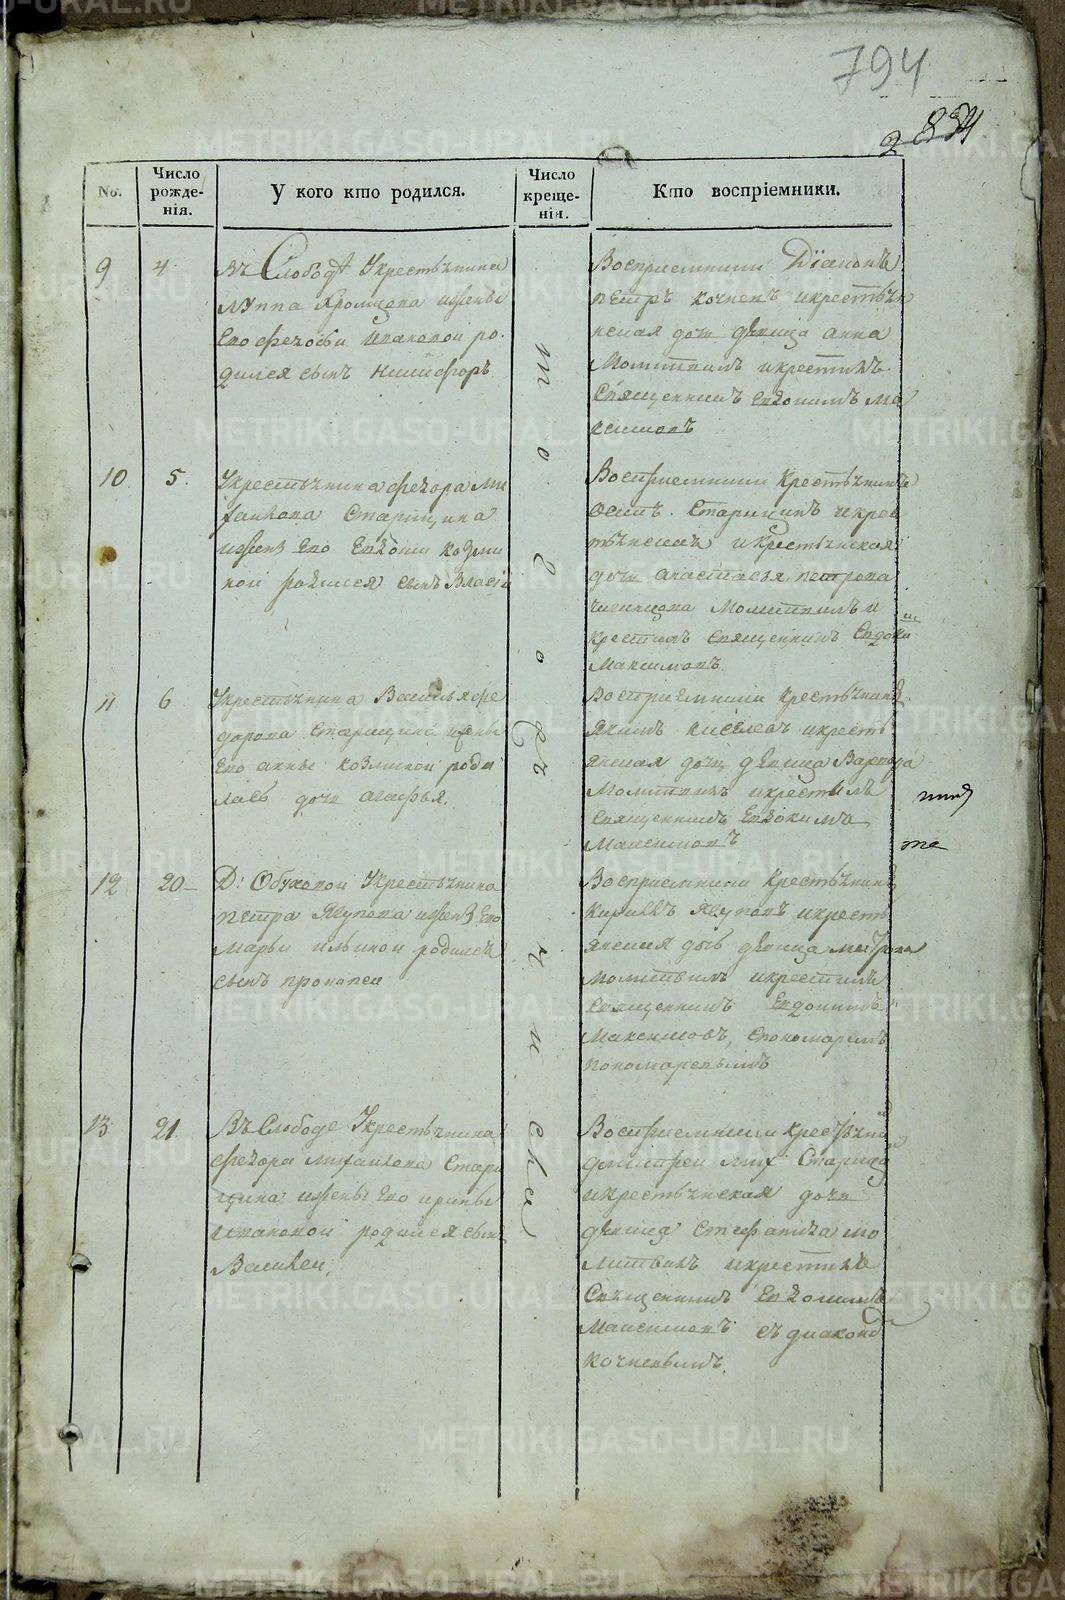 794
No.
Число рожденія.
У кого кто родился.
Число крещенія.
Кто воспріемники.
9
4
Въ Слободѣ Укрестьянина
ижены
Его родился сынъ Никифоръ
Воспріемники Діаконъ
Петръ Кочневъ икрестьян
нская дочь дѣвица анна
Молитвилъ икрестилъ
Священникъ Евдокимъ Ма
ксимовъ
10
5
Укрестьянина Федора Ми
хайлова Старицина
ижены Его Евдокіи Козми
ной родился сынъ Власій
Воспріемники Крестьянинъ
Старицинъ икрес
икрестьянская
дочь анастасья петрова
Молитвилъ и
крестилъ священникъ Евдоки
мъ
Максимовъ
11
6
Укрестьянина Василья фе
дорова Старицина ижены
Его анны козминой роди
лась дочь агафья.
Воспріемники Крестьянинъ
Якимъ киселевъ икресть
янская дочь дѣвица Варвара
Молитвилъ икрестилъ
Священникъ Евдокимъ
Максимовъ
12
20
Д: Обуховой Укрестьянина
петра Якупова ижены Его
Марьи ильиной родился
сынъ прокопей
Воспріемники Крестьянинъ
Кирилъ Якуповъ икресть
янская дочь дѣвица матрона
молитвилъ икрестилъ
священникъ Евдокимъ
Максимовъ, спономаремъ
пономаревымъ
13
21
Въ Слободе Укрестьянина
Федора михайлова Стари
цина ижены Его ирины
ивановой родился сынъ
Василей,
Воспріемники Крестьянинъ
дмитрей мих Старицынъ
икрестьянская дочь
дѣвица Стефанида мо
литвилъ икрестилъ
Священникъ Евдокимъ
Максимовъ съ диакономъ
кочневымъ.
того же числа
METRIKI.GASO-URAL.RU